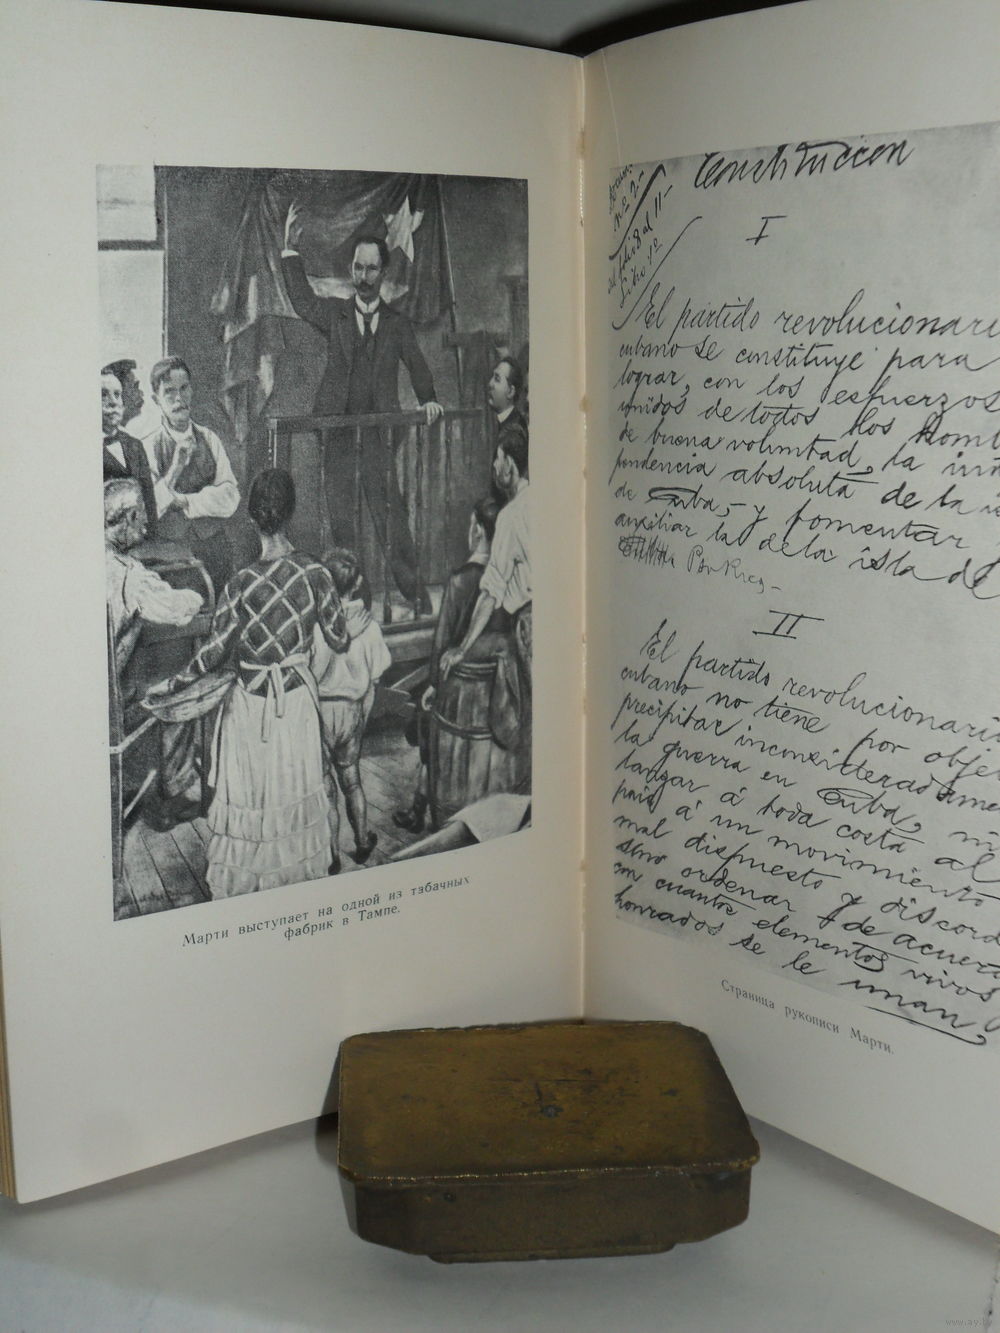 Марти выступает на одной из табачных
фабрик в Тампе.
Constitucion
nº 2-
al 11-
Libro 1º
I
El partido revolucionari
cubano se constituye para
lograr, con los esfuerzos
unidos de todos los homb
de buena voluntad, la ind
pendencia absoluta de la is
de Cuba, - y fomentar y
auxiliar la de la isla de
II
El partido revolucionario
cubano no tiene por obje
precipitar inconsideradame
la guerra en Cuba, ni
lanzar á toda costa al
pais á un movimiento
mal dispuesto y discord
sino ordenar de acuerd
con cuantos elementos vivos y
honrados se le unan,
Страница рукописи Марти.
www.ay.by